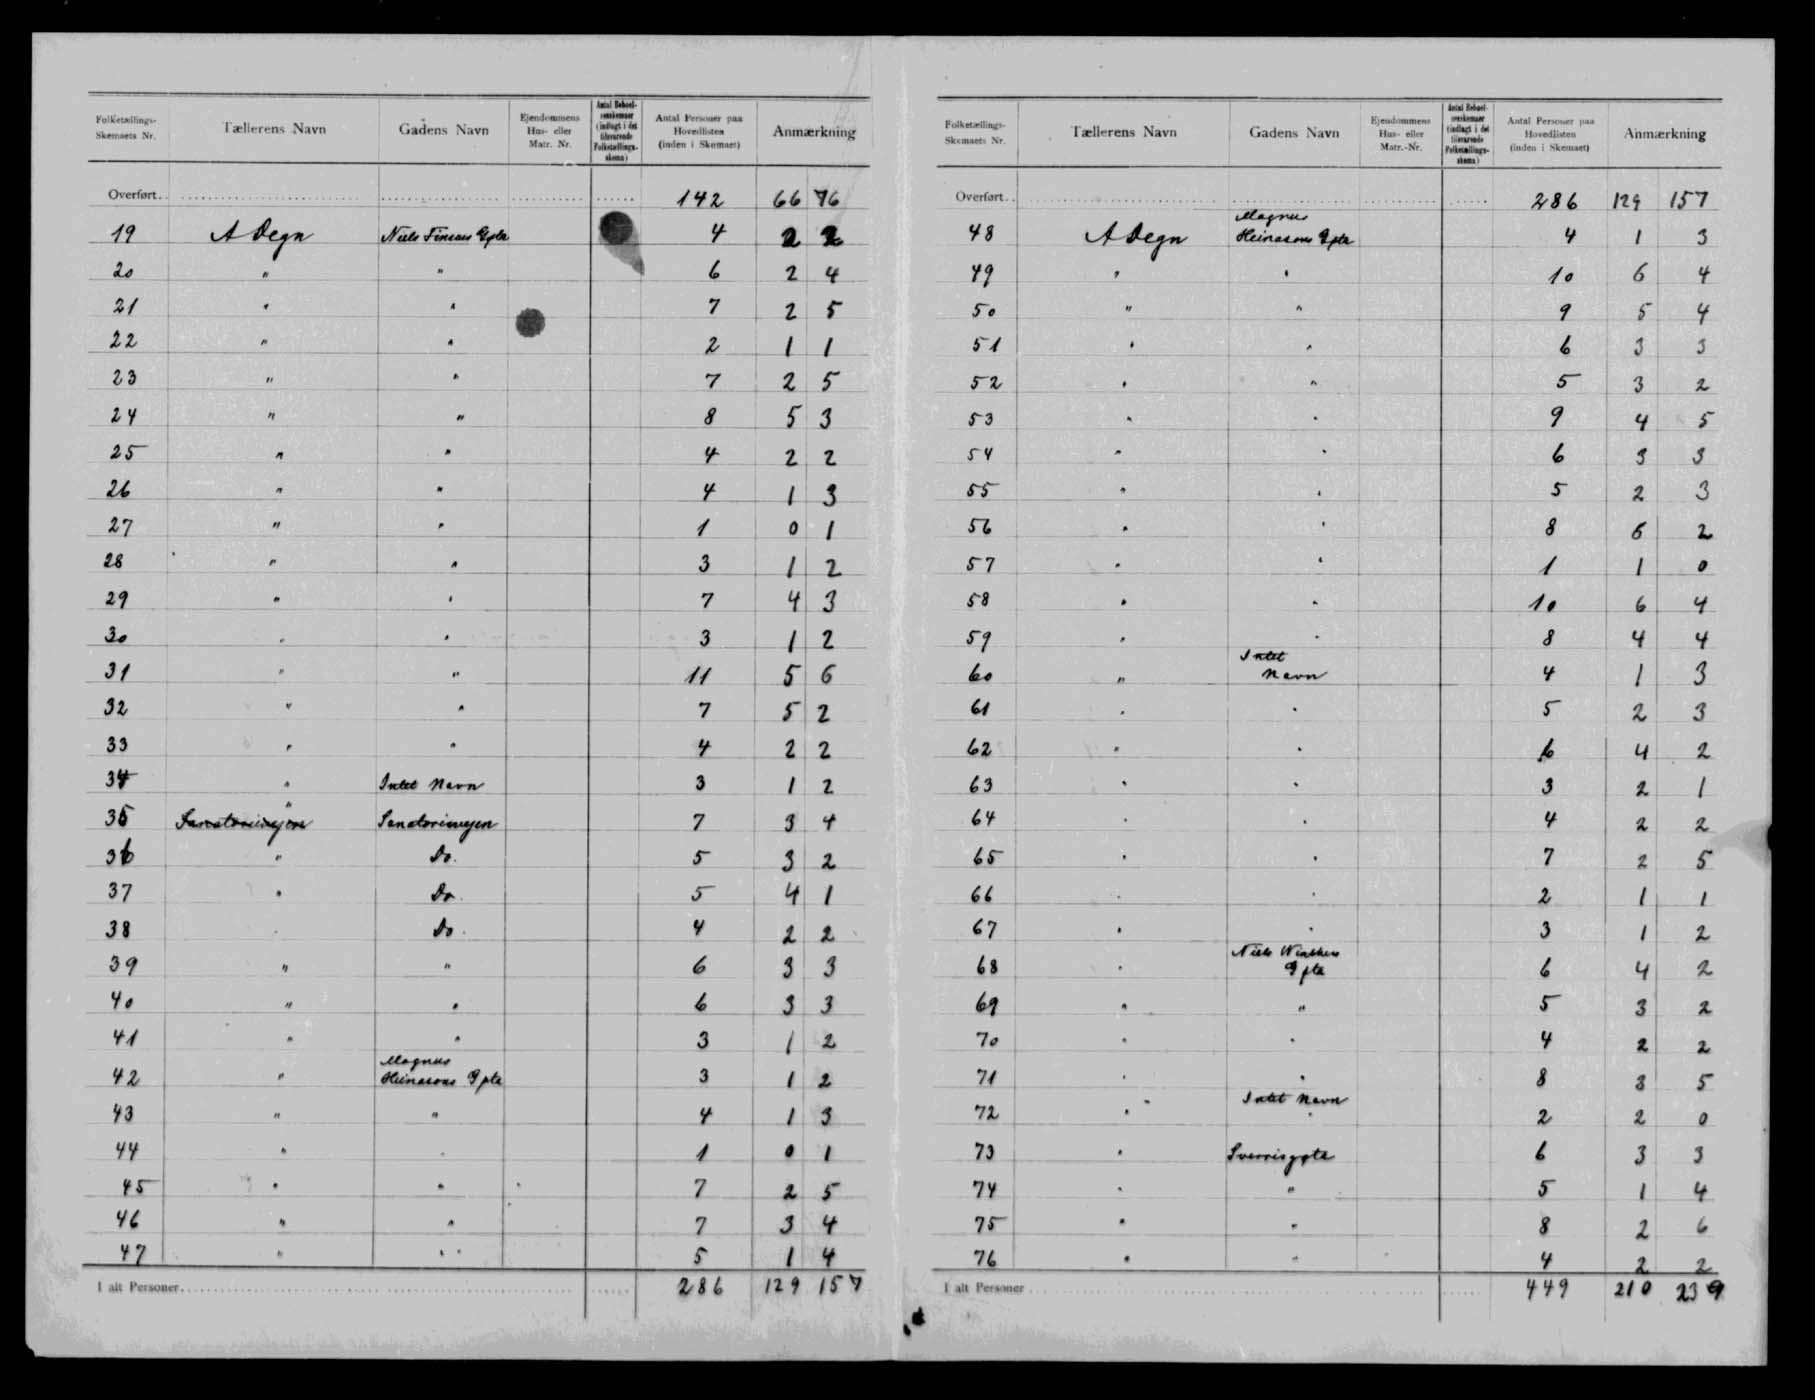 Folketællings-Skemaets Nr. Tællerens Navn Gadens Navn Ejendommens Hus- eller Matr. Nr. Antal Beboelsesskemaer (indlagt i det tilsvarende Folketællingsskema) Antal Personer paa Hovedlisten (inden i Skemaet) Anmærkning
Overført 142 66 76
19 A Degn Niels Finsens Gøta 4 2 2
20 " " 6 2 4
21 " " 7 2 5
22 " " 2 1 1
23 " " 7 2 5
24 " " 8 5 3
25 " " 4 2 2
26 " " 4 1 3
27 " " 1 0 1
28 " " 3 1 2
29 " " 7 4 3
30 " " 3 1 2
31 " " 11 5 6
32 " " 7 5 2
33 " " 4 2 2
34 " Intet Navn 3 1 2
35 Sanatorievejen " Sanatorievejen 7 3 4
36 " Do. 5 3 2
37 " Do. 5 4 1
38 " Do. 4 2 2
39 " " 6 3 3
40 " " 6 3 3
41 " " 3 1 2
42 " Magnus Heinasons Gøta 3 1 2
43 " " 4 1 3
44 " " 1 0 1
45 " " 7 2 5
46 " " 7 3 4
47 " " 5 1 4
I alt Personer 286 129 157
Folketællings-Skemaets Nr. Tællerens Navn Gadens Navn Ejendommens Hus- eller Matr.-Nr. Antal Beboelsesskemaer (indlagt i det tilsvarende Folketællingsskema) Antal Personer paa Hovedlisten (inden i Skemaet) Anmærkning
Overført 286 129 157
48 A Degn Magnus Heinasons Gøta 4 1 3
49 " " 10 6 4
50 " " 9 5 4
51 " " 6 3 3
52 " " 5 3 2
53 " " 9 4 5
54 " " 6 3 3
55 " " 5 2 3
56 " " 8 6 2
57 " " 1 1 0
58 " " 10 6 4
59 " " 8 4 4
60 " Intet Navn 4 1 3
61 " " 5 2 3
62 " " 6 4 2
63 " " 3 2 1
64 " " 4 2 2
65 " " 7 2 5
66 " " 2 1 1
67 " " 3 1 2
68 " Niels Winthers Gøta 6 4 2
69 " " 5 3 2
70 " " 4 2 2
71 " " 8 3 5
72 " Intet Navn 2 2 0
73 " Sverrisgøta 6 3 3
74 " " 5 1 4
75 " " 8 2 6
76 " " 4 2 2
I alt Personer 449 210 239